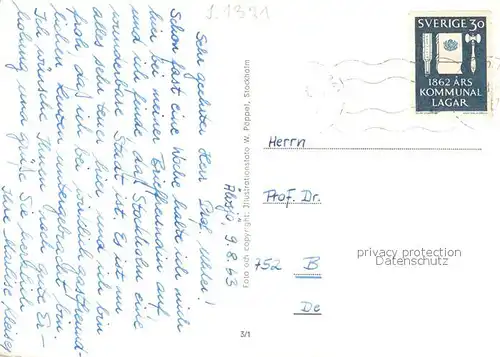 S. 1331
Älvsjö, 9.8.63
Sehr geehrter Herr Prof. Uhlei!
Schon fast eine Woche halte ich mich
hier bei meiner Brieffreundin auf
und ich finde daß Stockholm eine
wunderbare Stadt ist. Es ist nur
alles sehr teuer hier und ich bin
froh daß ich bei wirklich gastfreund-
lichen Leuten untergebracht bin.
Ich wünsche Ihnen noch gute Er-
holung und grüße Sie herzlich
Ihre Marlese
Foto och copyright: Illustrationsfoto W. Pöppel, Stockholm
3/1
SVERIGE 30
1862 ÅRS
KOMMUNAL
LAGAR
Herrn
Prof. Dr.
752 B
De
privacy protection
Datenschutz